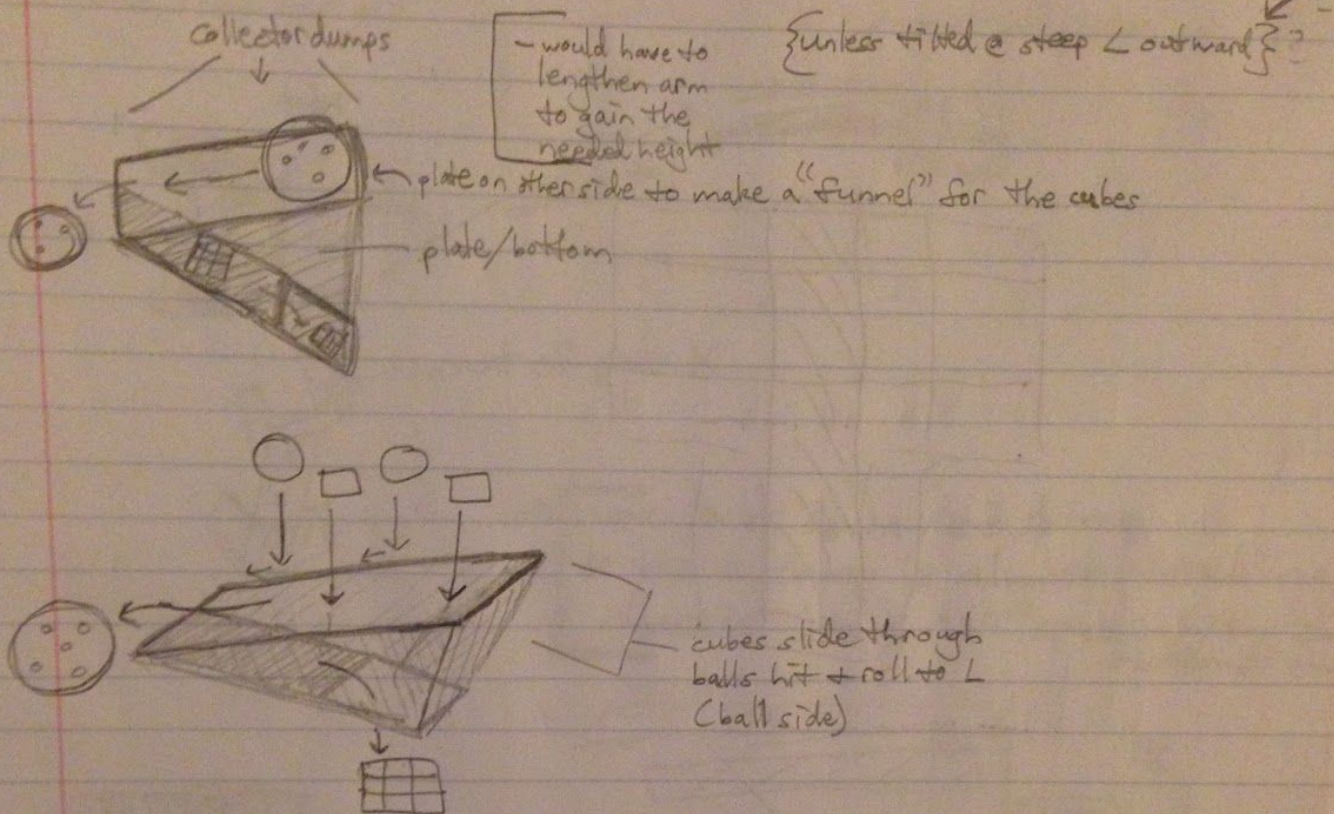 collector dumps
- would have to
lengthen arm
to gain the
needed height
{unless tilted @ steep ∠ outward}?
plate on other side to make a "funnel" for the cubes
plate/bottom
cubes slide through
balls hit + roll to L
(ball side)